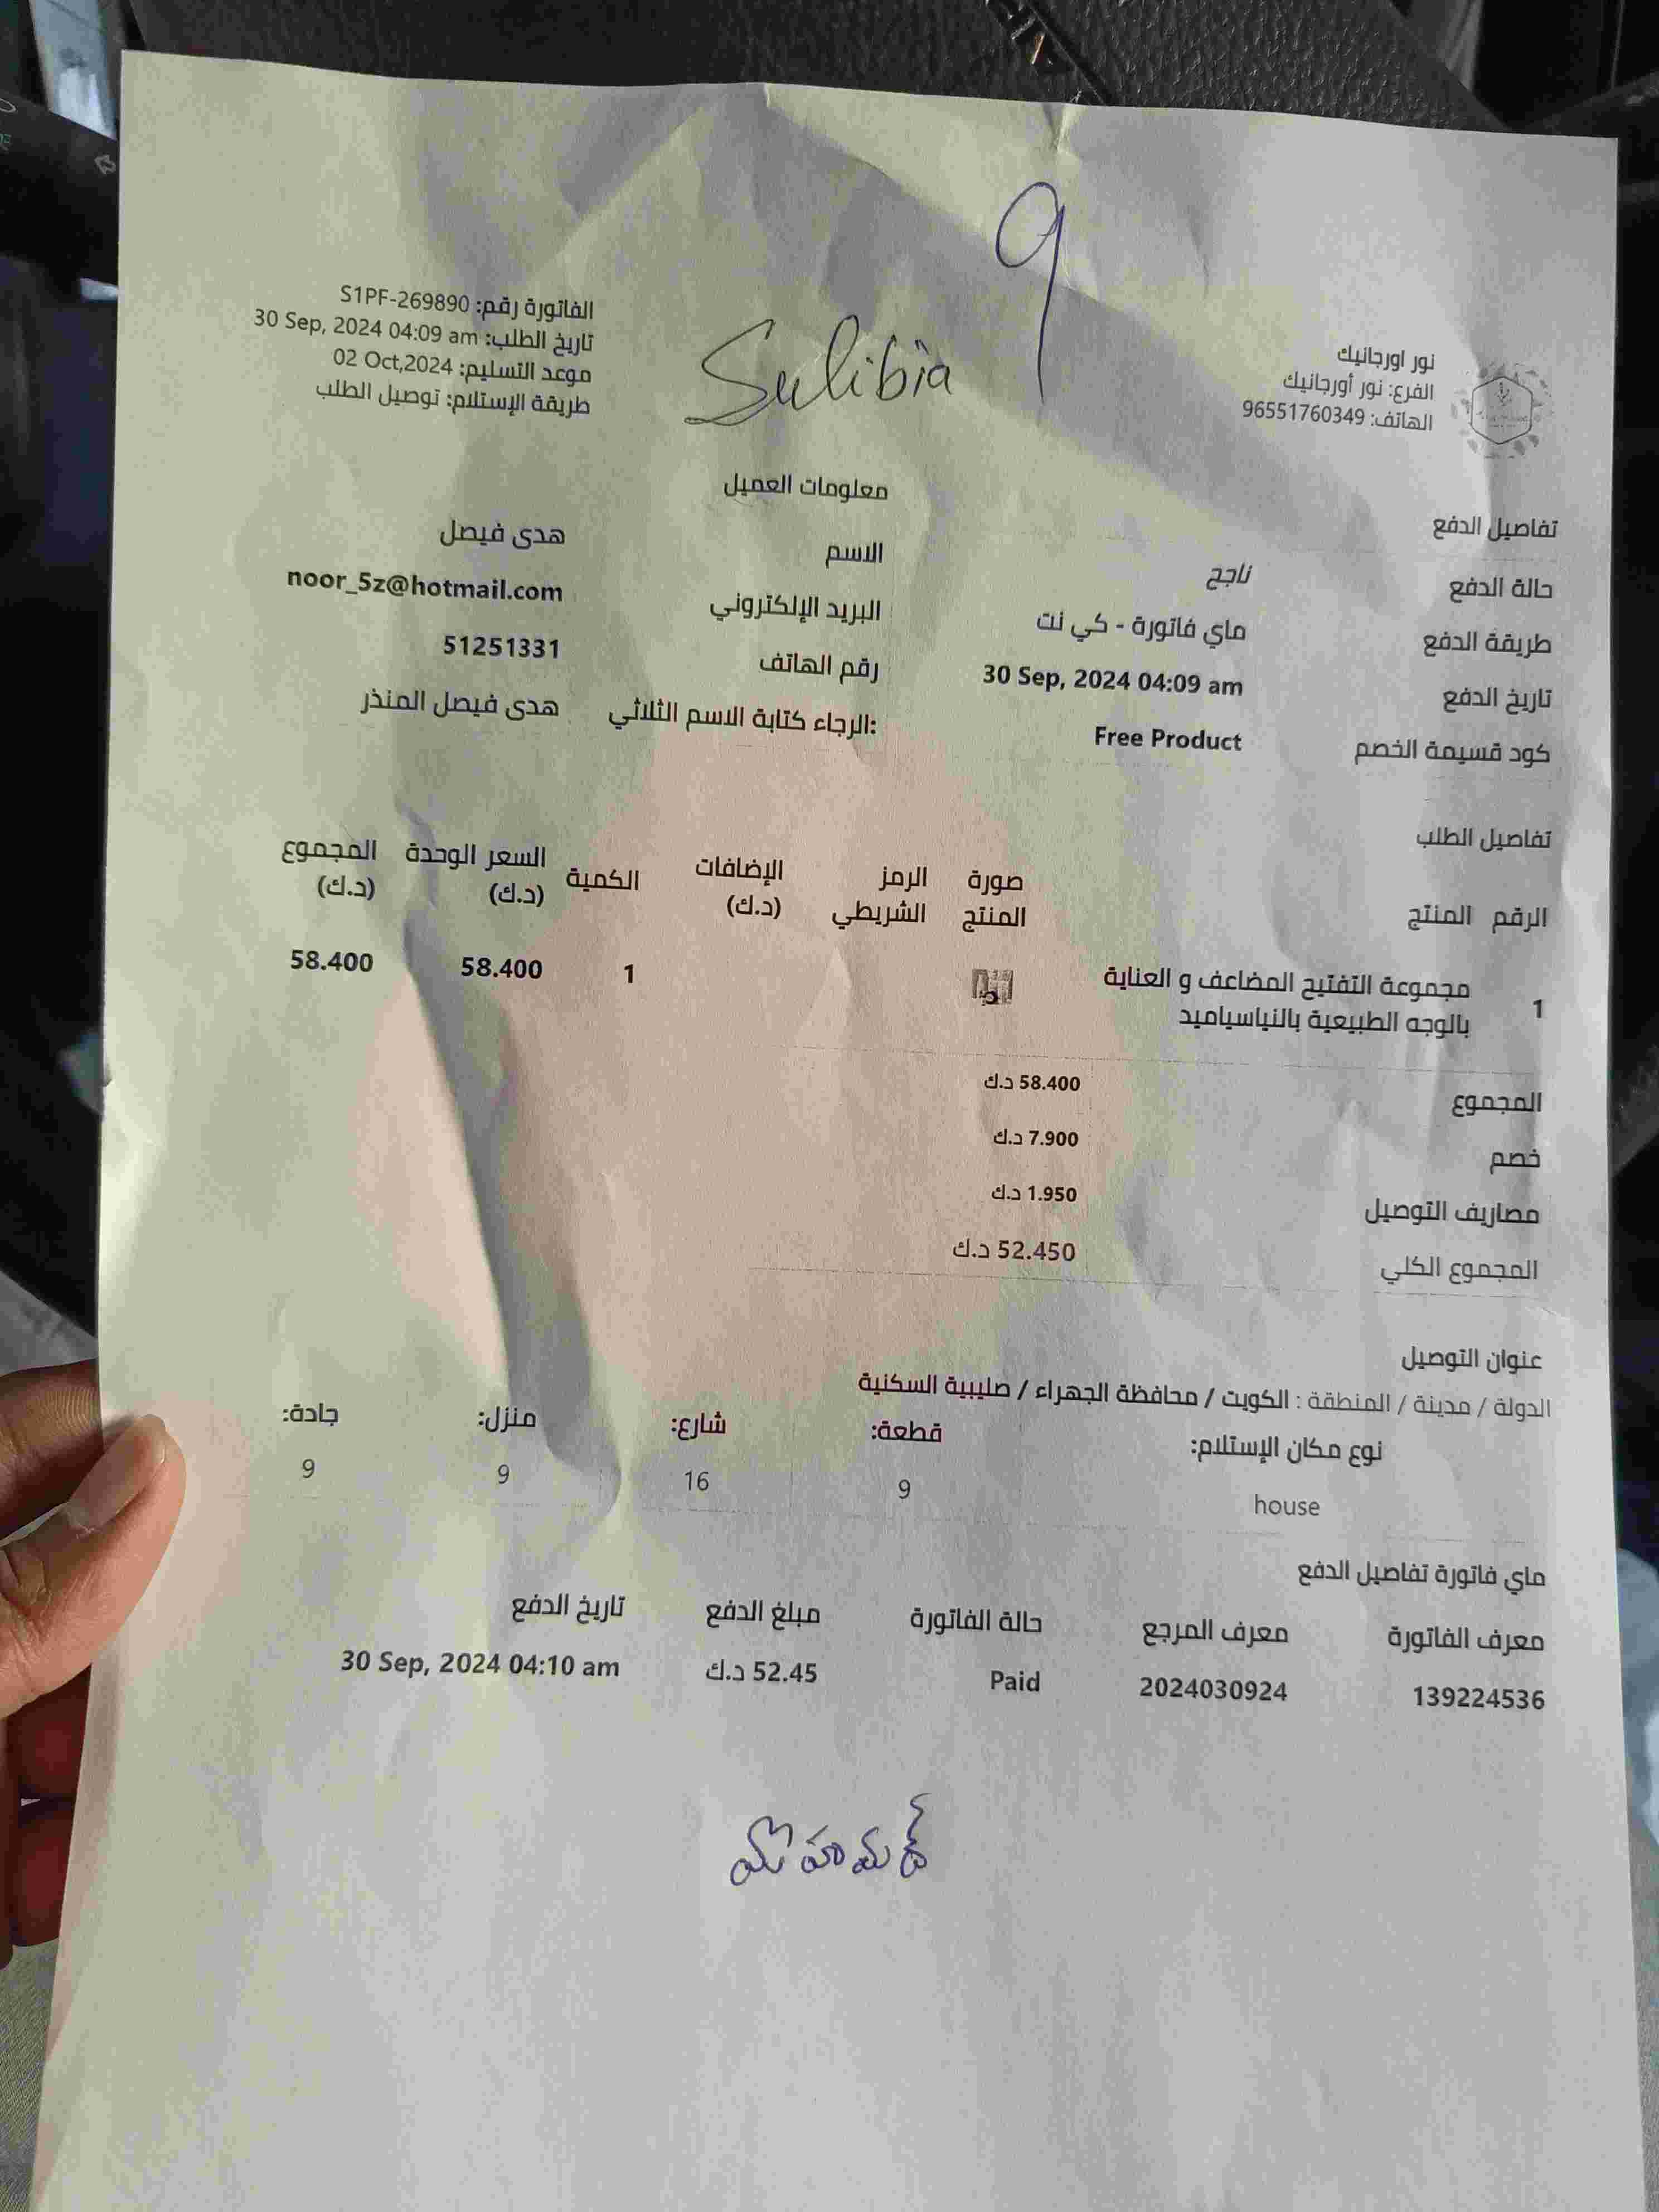 9
Sulibia
نور اورجانيك
الفرع: نور أورجانيك
الهاتف: 96551760349
الفاتورة رقم: S1PF-269890
تاريخ الطلب: 30 Sep, 2024 04:09 am
موعد التسليم: 02 Oct,2024
طريقة الإستلام: توصيل الطلب
تفاصيل الدفع
حالة الدفع ناجح
طريقة الدفع ماي فاتورة - كي نت
تاريخ الدفع 30 Sep, 2024 04:09 am
كود قسيمة الخصم Free Product
معلومات العميل
الاسم هدى فيصل
البريد الإلكتروني noor_5z@hotmail.com
رقم الهاتف 51251331
الرجاء كتابة الاسم الثلاثي: هدى فيصل المنذر
تفاصيل الطلب
الرقم المنتج صورة المنتج الرمز الشريطي الإضافات (د.ك) الكمية السعر الوحدة (د.ك) المجموع (د.ك)
1 مجموعة التفتيح المضاعف و العناية 1 58.400 58.400
بالوجه الطبيعية بالنياسياميد
المجموع 58.400 د.ك
خصم 7.900 د.ك
مصاريف التوصيل 1.950 د.ك
المجموع الكلي 52.450 د.ك
عنوان التوصيل
الدولة / مدينة / المنطقة : الكويت / محافظة الجهراء / صليبية السكنية
نوع مكان الإستلام: قطعة: شارع: منزل: جادة:
house 9 16 9 9
ماي فاتورة تفاصيل الدفع
معرف الفاتورة معرف المرجع حالة الفاتورة مبلغ الدفع تاريخ الدفع
139224536 2024030924 Paid 52.45 د.ك 30 Sep, 2024 04:10 am
మొహమద్